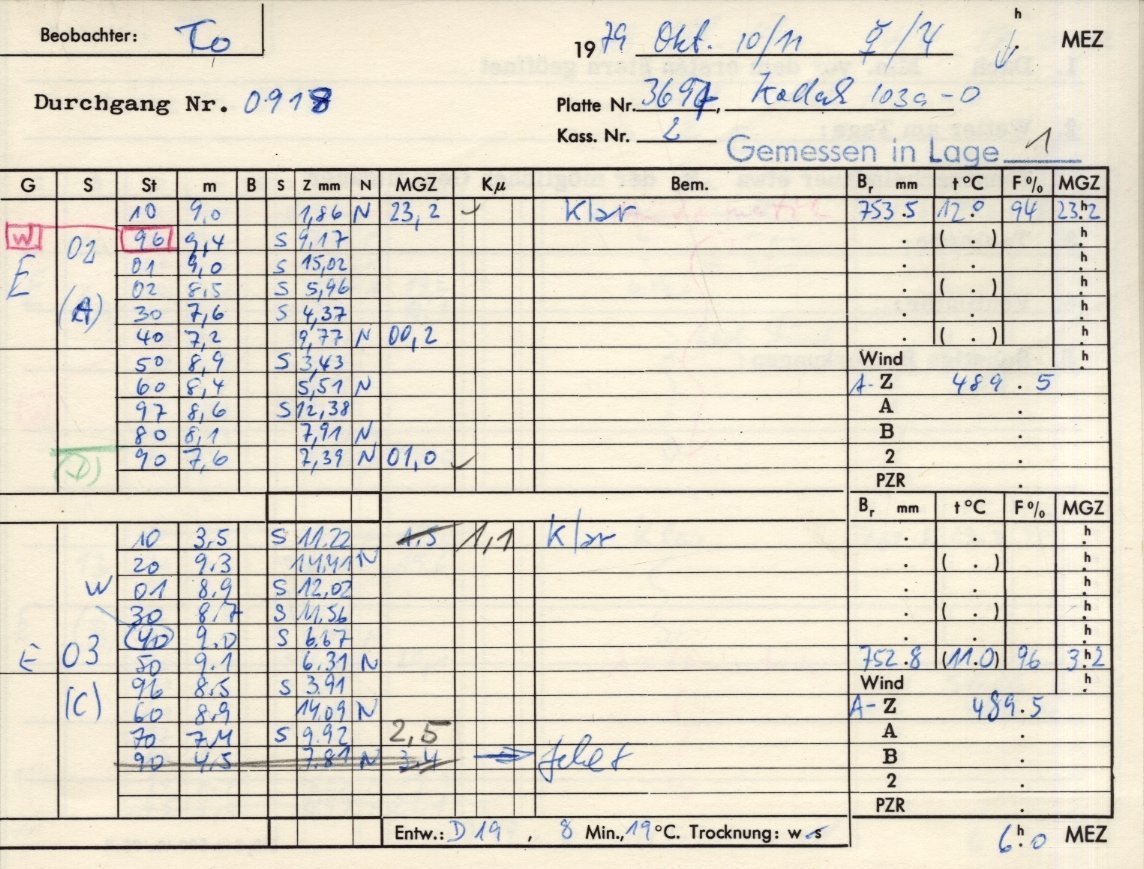 Beobachter: To
1979 Okt. 10/11 h MEZ
Durchgang Nr. 0918
Platte Nr. 3697, Kodak 103a-O
Kass. Nr. 2
Gemessen in Lage 1
G S St m B S Z mm N MGZ Kμ Bem. Br mm t °C F % MGZ
10 9,0 1,86 N 23,2 ✓ Klar 753.5 12.0 94 23.h2
W 02 96 9,4 S 9,17 ( . ) h
E 01 9,0 S 15,02 . h
02 8,5 S 5,96 ( . ) h
(A) 30 7,6 S 4,37 . h
40 7,2 9,77 N 00,2 ( . ) h
50 8,9 S 3,43 Wind h
60 8,4 5,51 N A- Z 489.5
97 8,6 S 12,38 A .
80 8,1 7,91 N B .
(D) 90 7,6 7,39 N 01,0 ✓ 2 .
PZR .
Br mm t °C F % MGZ
10 3.5 S 11.22 1,5 1,1 Klar . . h
20 9.3 14,41 N ( . ) h
W 01 8.9 S 12,02 . h
30 8.7 S 11.56 ( . ) h
(40) 9.0 S 6.67 . h
E 03 50 9.1 6.31 N 752.8 (11.0) 96 3.h2
96 8.5 S 3.91 Wind h
(C) 60 8.9 14,09 N A- Z 489.5
70 7.1 S 9.92 2,5 A .
90 4,5 7.81 N 3,4 fehlt B .
2 .
PZR .
Entw.: D 19, 8 Min., 19 °C. Trocknung: w s
6.h0 MEZ